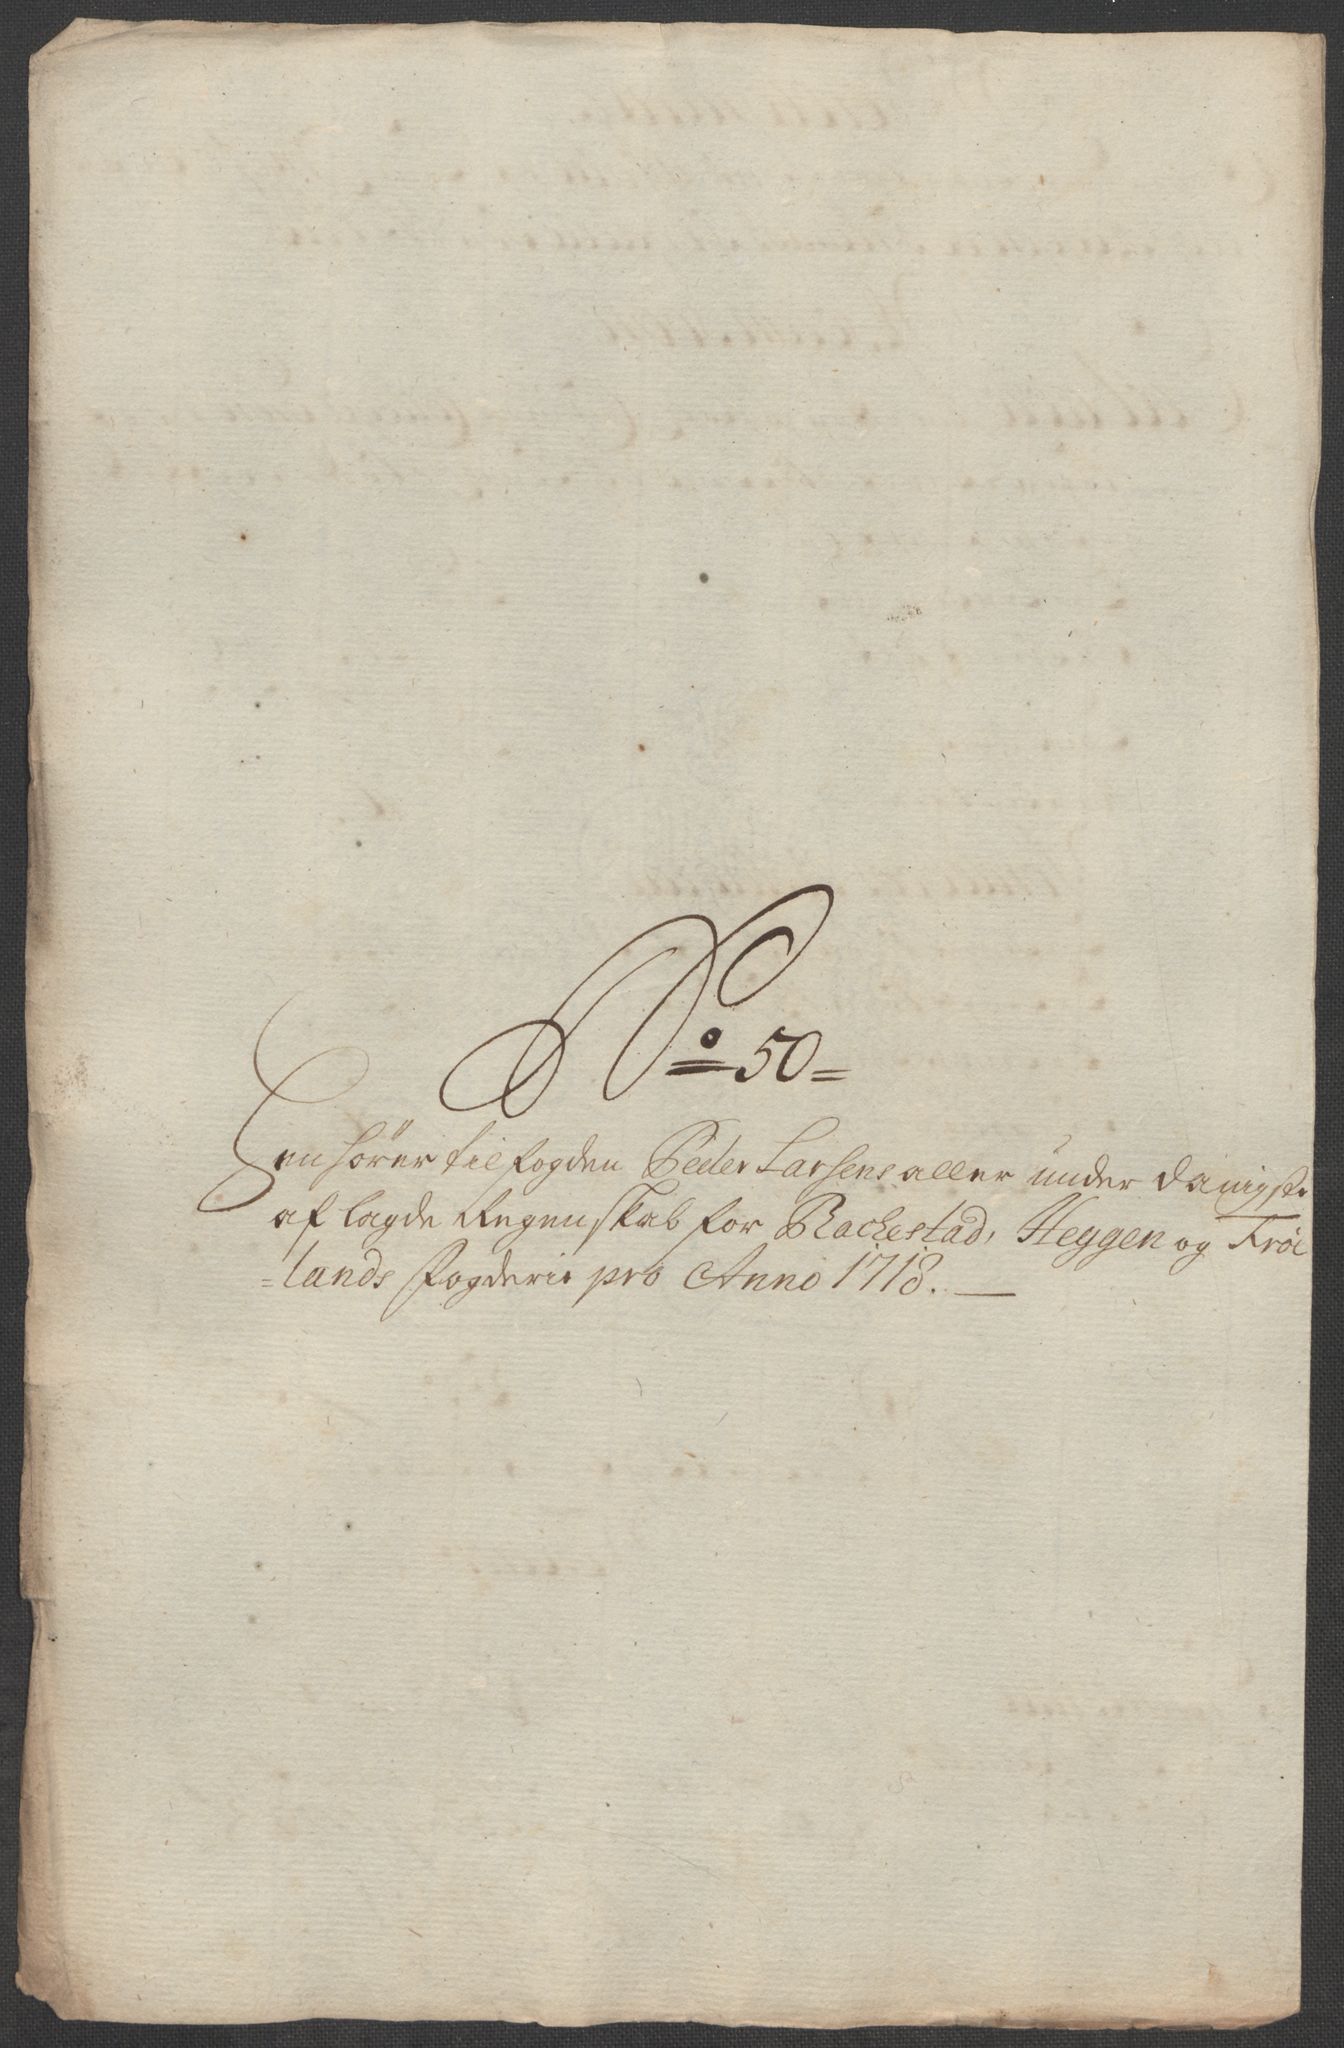 No 50
Henhører til fogden Peder Larsens aller under danigste
aflagde Regenskab for Rackestad, Heggen og Frøe
=lands Fogderie pro Anno 1718.